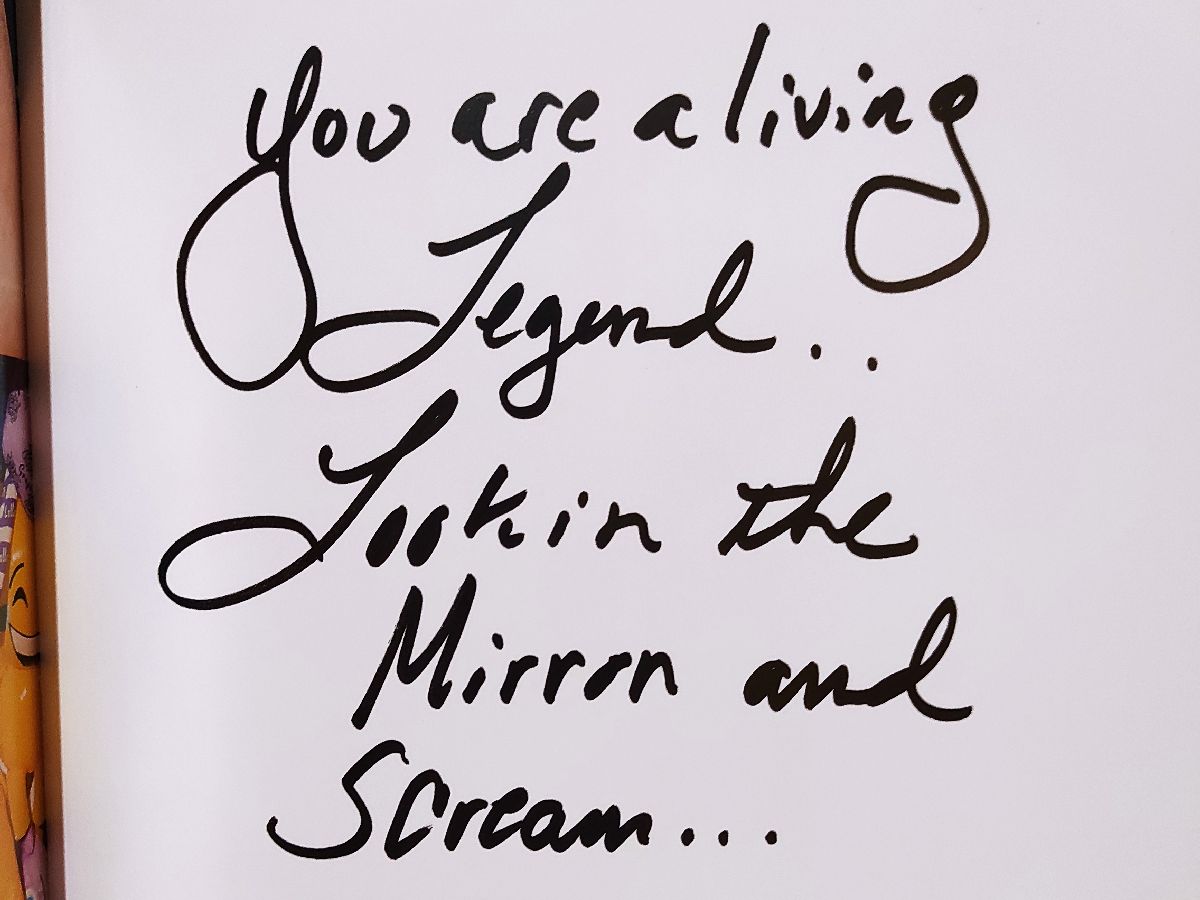 you are a living
Legend..
Look in the
Mirror and
Scream...